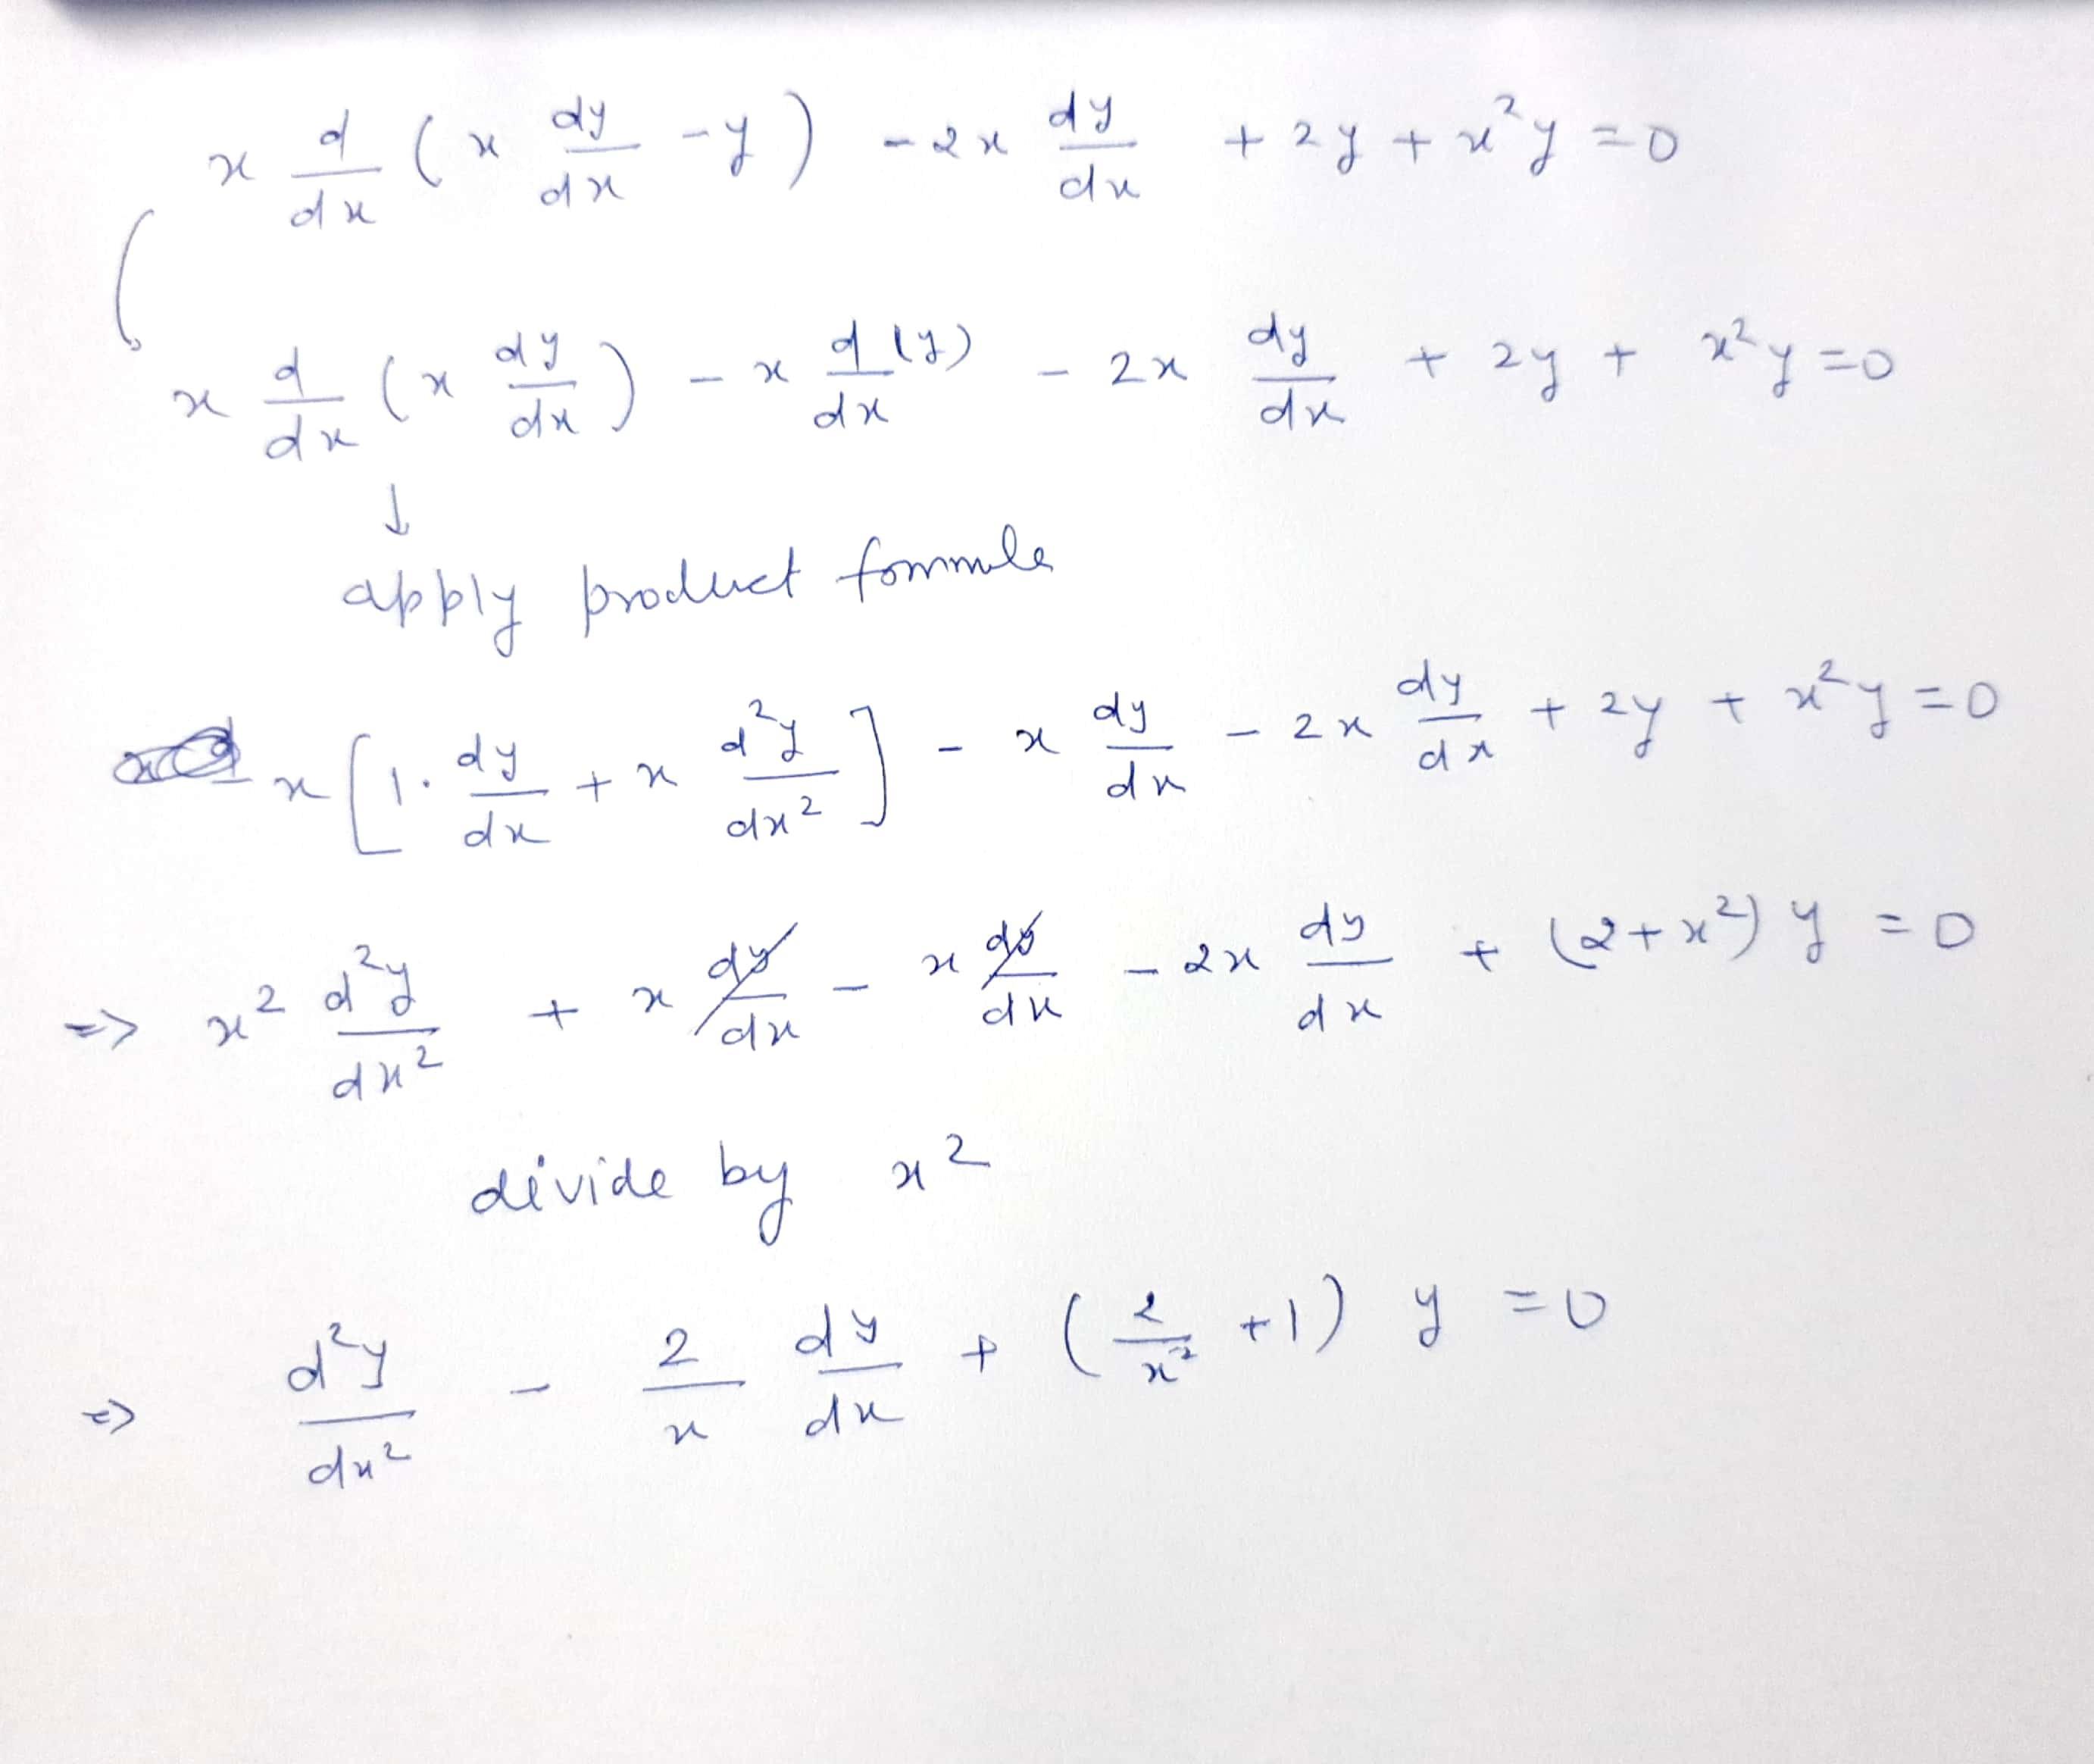 x d/dx (x dy/dx - y) - 2x dy/dx + 2y + x²y = 0
x d/dx (x dy/dx) - x d(y)/dx - 2x dy/dx + 2y + x²y = 0
↓
apply product formule
x [1. dy/dx + x d²y/dx²] - x dy/dx - 2x dy/dx + 2y + x²y = 0
=> x² d²y/dx² + x dy/dx - x dy/dx - 2x dy/dx + (2 + x²) y = 0
divide by x²
=> d²y/dx² - 2/x dy/dx + (2/x² + 1) y = 0